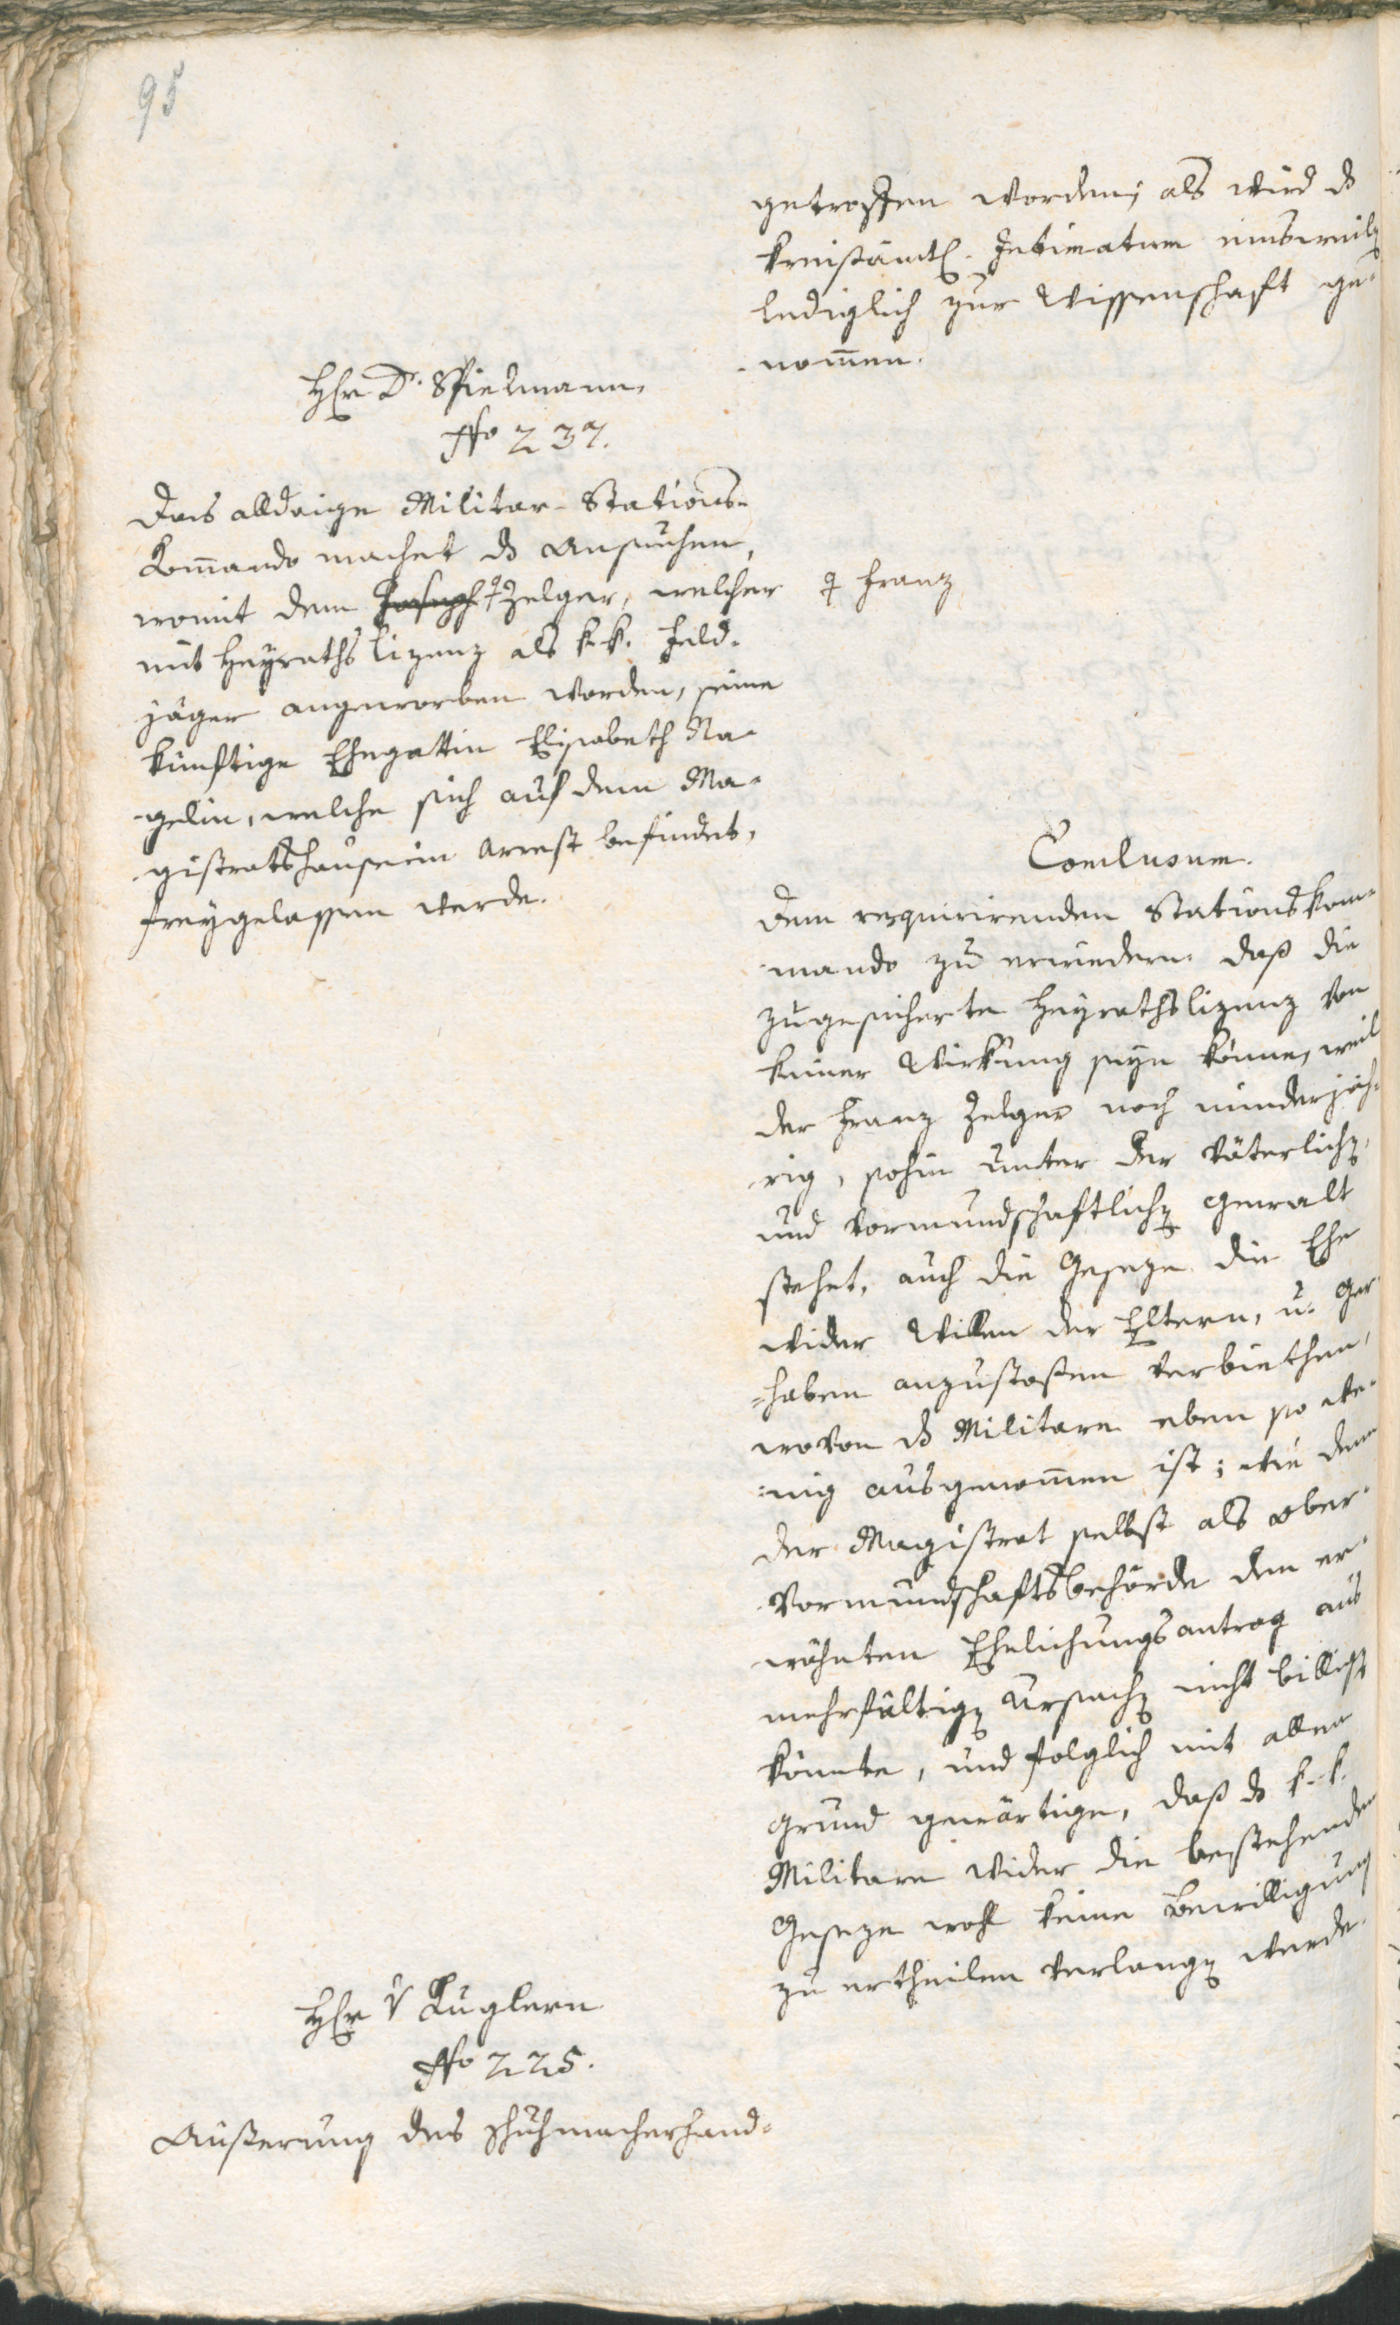 95
getroffen worden; als wird ds
kreisämtl. Intimatum einsweilg
lediglich zur Wissenschaft ge-
nom̄en.
Hr Dr. Spielmann.
No 237.
Das alldaige Militar-Stations-
Kom̄ando machet ds Ansuchen,
womit dem Joseph Zelger, welcher
mit Heyrathslizenz als k. k. Feld-
jäger angeworben worden, seine
künftige Ehegattin Elisabeth Na-
gelin, welche sich auf dem Ma-
gistratshause im Arrest befindet,
freygelassen werde.
Franz
Conclusum.
Dem requirirenden Stationskom-
mando zu erwiedern: daß die
zugesicherte Heyrathslizenz von
keiner Wirkung seyn könne, weil
der Franz Zelger noch minderjäh-
rig, sohin unter der väterlichg
und vormundschaftlichg Gewalt
stehet, auch die Geseze die Ehe
wider Willen der Eltern, u. Ger-
haben anzustoßen verbiethen,
wovon ds Militare eben so we-
nig ausgenom̄en ist; wie denn
der Magistrat selbst als Ober-
vormundschaftsbehörde dem er-
wähnten Ehelichungsantrag aus
mehrfältigg Ursachg nicht billigg
könnte, und folglich mit allem
Grund gewärtige, daß ds k. k.
Militare wider die bestehenden
Geseze wohl keine Bewilligung
zu ertheilen verlangg werde.
Hr v Kuglern
No 225.
Äußerung des Schuhmacherhand-